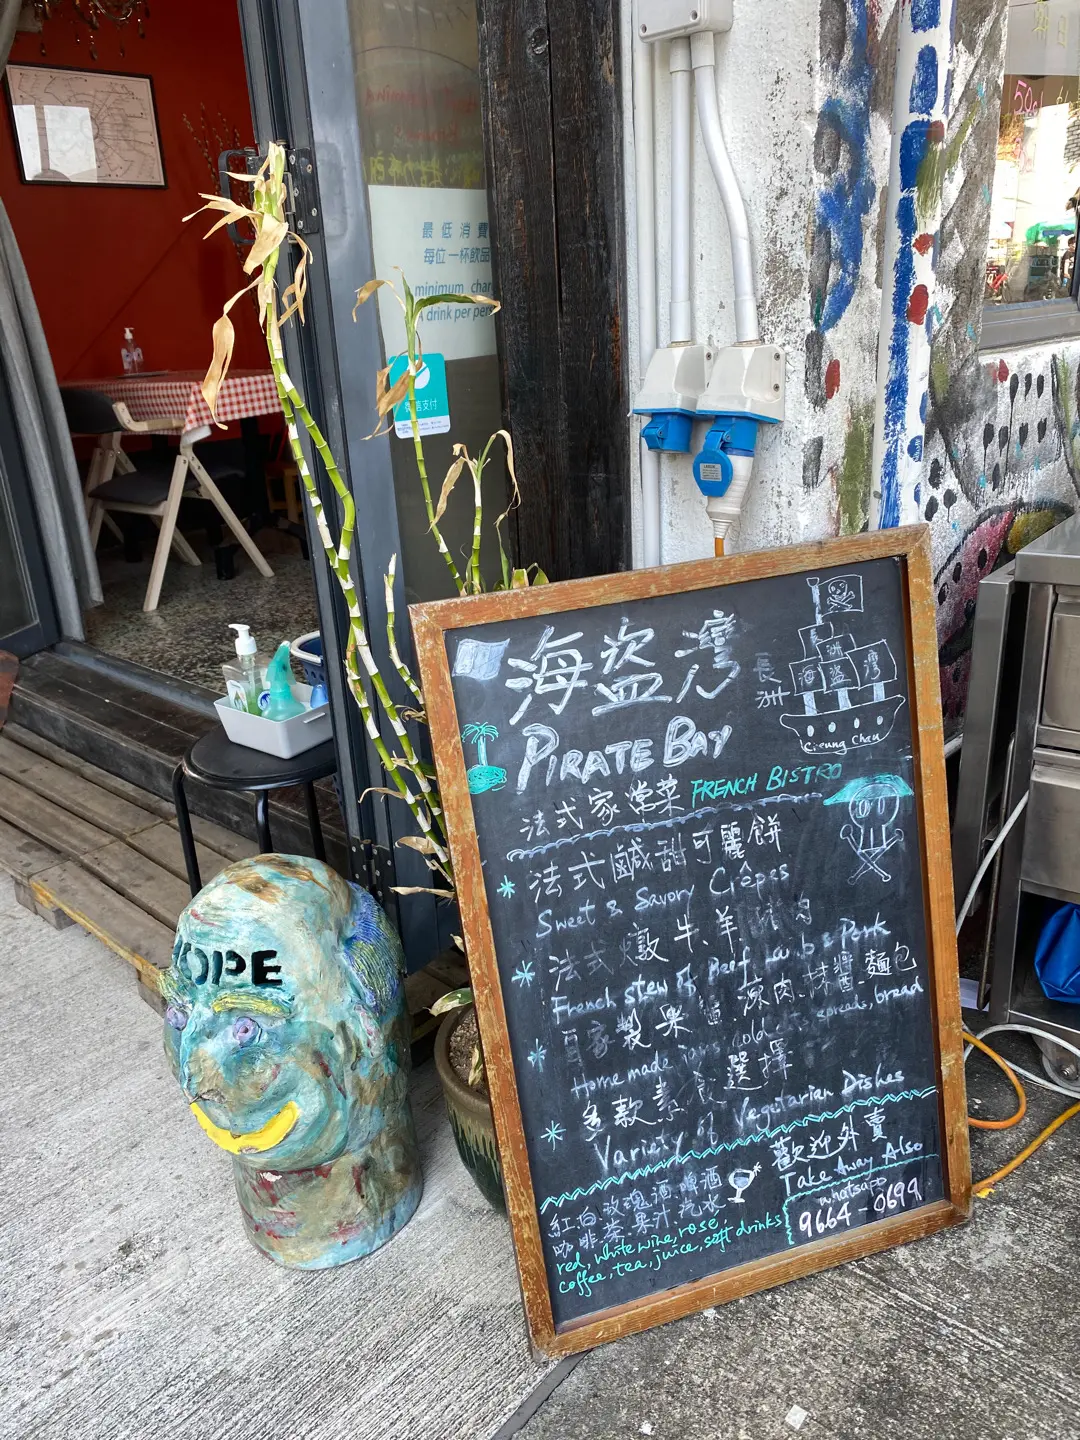 最低消費
每位一杯飲品
minimum char
A drink per per
支付
海盜灣
長洲
洲
海盜灣
Cheung Chau
PIRATE BAY
法式家常菜 FRENCH BISTRO
法式鹹甜可麗餅
Sweet & Savory Crêpes
法式燉牛、羊、豬肉
French stew of Beef, Lamb & Pork
自家製果醬、凍肉、抹醬、麵包
Home made jams, cold cuts, spreads, bread
多款素食選擇
Variety of Vegetarian Dishes
歡迎外賣
Take Away Also
紅白玫瑰酒 啤酒
咖啡茶果汁汽水
red, white wine, rose,
coffee, tea, juice, soft drinks
whatsapp
9664-0699
HOPE